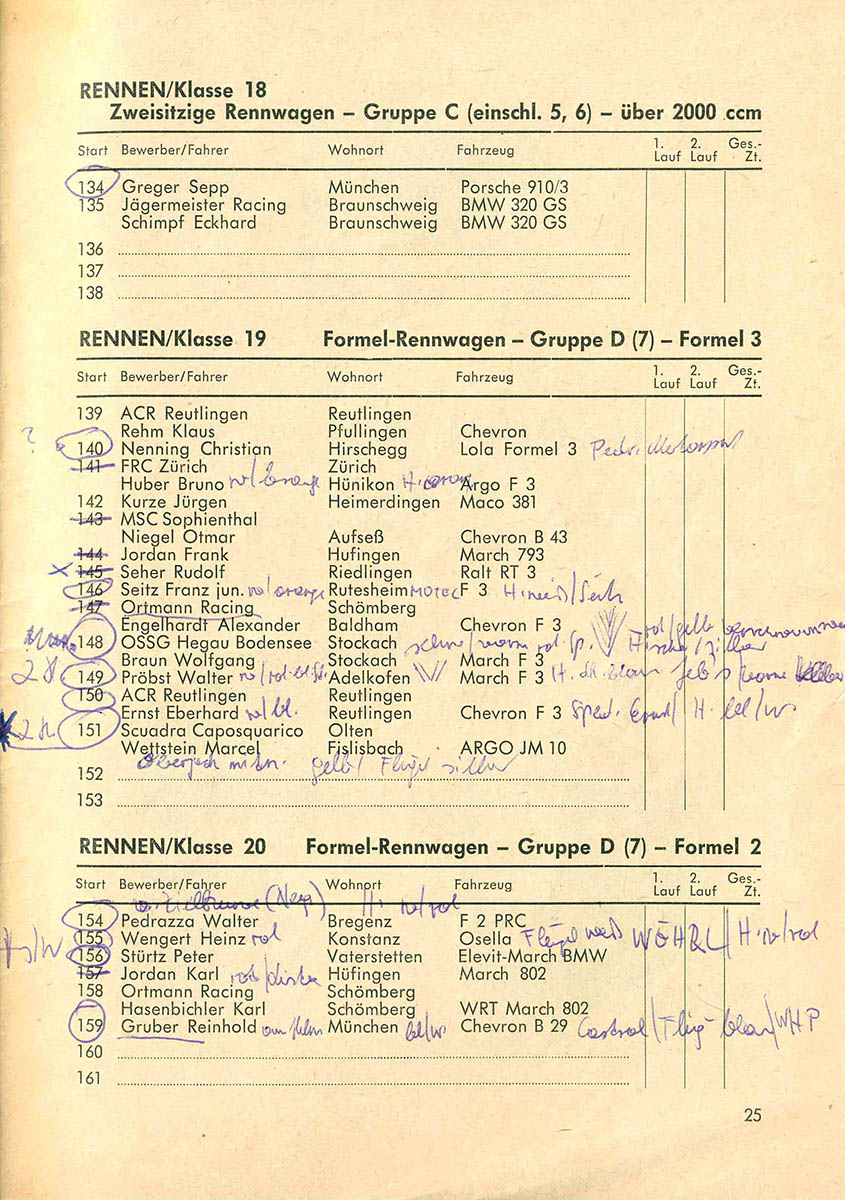 RENNEN/Klasse 18
Zweisitzige Rennwagen – Gruppe C (einschl. 5, 6) – über 2000 ccm
Start Bewerber/Fahrer Wohnort Fahrzeug 1. Lauf 2. Lauf Ges.-Zt.
134 Greger Sepp München Porsche 910/3
135 Jägermeister Racing Braunschweig BMW 320 GS
Schimpf Eckhard Braunschweig BMW 320 GS
136
137
138
RENNEN/Klasse 19 Formel-Rennwagen – Gruppe D (7) – Formel 3
Start Bewerber/Fahrer Wohnort Fahrzeug 1. Lauf 2. Lauf Ges.-Zt.
139 ACR Reutlingen Reutlingen
? Rehm Klaus Pfullingen Chevron
140 Nenning Christian Hirschegg Lola Formel 3
141 FRC Zürich Zürich
Huber Bruno Hünikon Argo F 3
142 Kurze Jürgen Heimerdingen Maco 381
143 MSC Sophienthal
Niegel Otmar Aufseß Chevron B 43
144 Jordan Frank Hufingen March 793
x 145 Seher Rudolf Riedlingen Ralt RT 3
146 Seitz Franz jun. ro/orange Rutesheim MOTEC F 3
147 Ortmann Racing Schömberg
Engelhardt Alexander Baldham Chevron F 3
148 OSSG Hegau Bodensee Stockach
Braun Wolfgang Stockach March F 3
149 Pröbst Walter Adelkofen March F 3
150 ACR Reutlingen Reutlingen
Ernst Eberhard Reutlingen Chevron F 3
151 Scuadra Caposquarico Olten
Wettstein Marcel Fislisbach ARGO JM 10
gelb/ Flügel silber
152
153
RENNEN/Klasse 20 Formel-Rennwagen – Gruppe D (7) – Formel 2
Start Bewerber/Fahrer Wohnort Fahrzeug 1. Lauf 2. Lauf Ges.-Zt.
154 Pedrazza Walter Bregenz F 2 PRC
155 Wengert Heinz rot Konstanz Osella Flügel weiß WÖHRL/
156 Stürtz Peter Vaterstetten Elevit-March BMW
157 Jordan Karl Hüfingen March 802
158 Ortmann Racing Schömberg
Hasenbichler Karl Schömberg WRT March 802
159 Gruber Reinhold München bl/w. Chevron B 29 Castrol/Flüg. blau/WHP
160
161
25